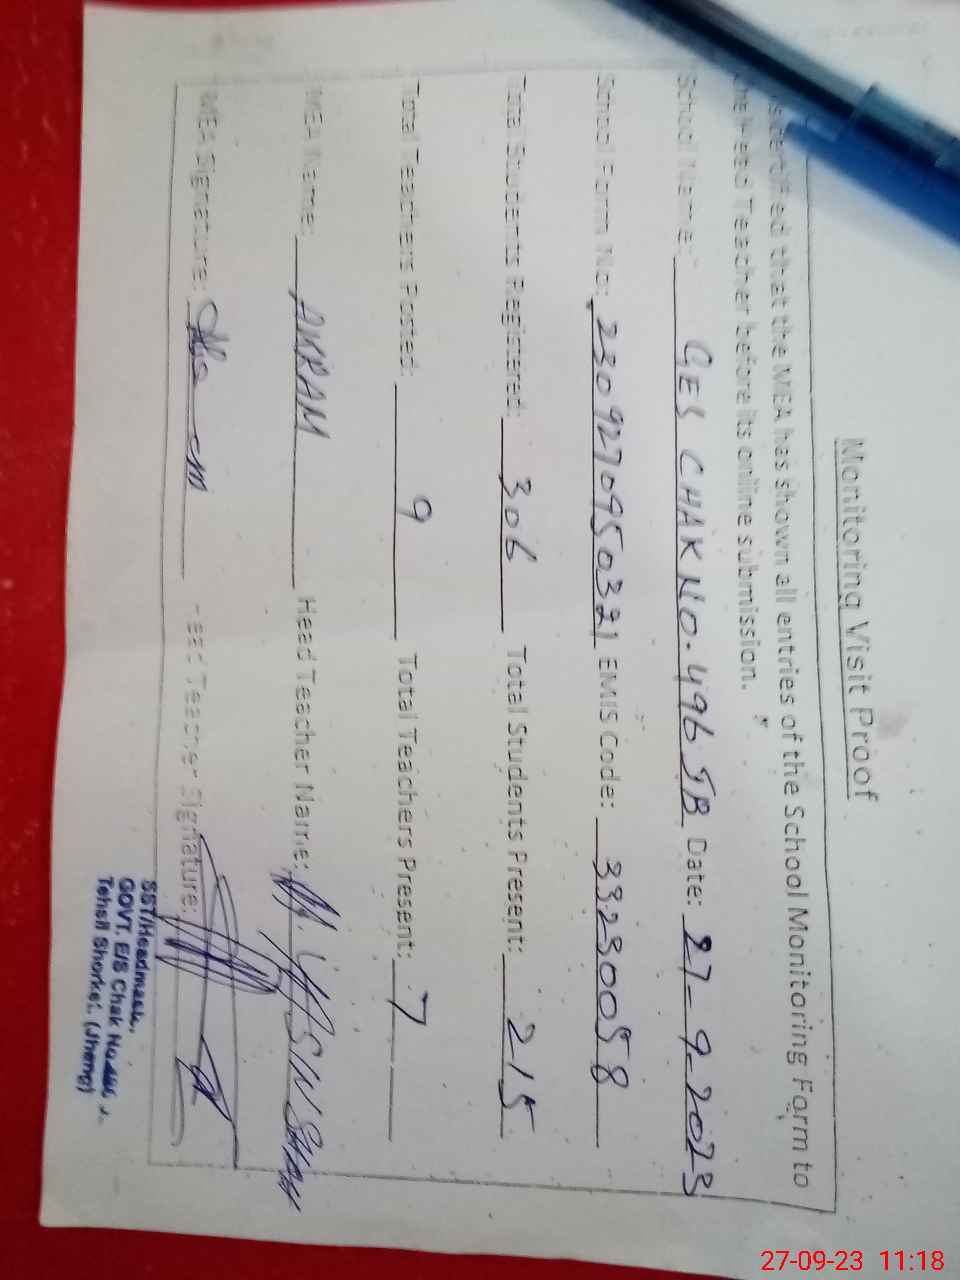 Monitoring Visit Proof
that the MEA has shown all entries of the School Monitoring Form to
Head Teacher before its online submission.
School Name: GES CHAK NO. 496 JB Date: 27-9-2023
School Form No: 2309270950321 EMIS Code: 33230058
Total Students Registered: 306 Total Students Present: 215
Total Teachers Posted: 9 Total Teachers Present: 7
MEA Name: AKRAM Head Teacher Name: M. YASIN SHAH
MEA Signature: Head Teacher Signature:
SST/Headmaster
GOVT. E/S Chak No.
Tehsil Shorkot (Jhang)
27-09-23 11:18